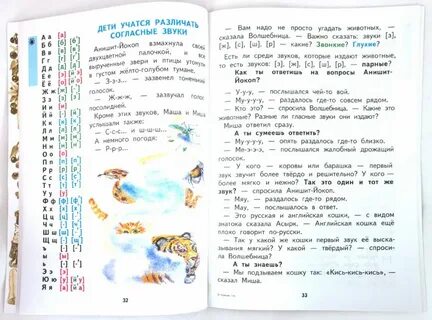 ДЕТИ УЧАТСЯ РАЗЛИЧАТЬ
СОГЛАСНЫЕ ЗВУКИ
Аа
Бб
Вв
Гг
Дд
Ее
Ёё
Жж
Зз
Ии
Йй
Кк
Лл
Мм
Нн
Оо
Пп
Рр
Сс
Тт
Уу
Фф
Хх
Цц
Чч
Шш
Щщ
ъ
ы
ь
Ээ
Юю
Яя
Анишит-Йокоп взмахнула своей
двухцветной палочкой — и все
вырученные звери и птицы утонули
в густом жёлто-голубом тумане.
— З-з-з... — зазвенел тоненький
голосок.
— Ж-ж-ж, — зазвучал голос
посолидней.
Кроме этих звуков, Маша и Миша
услышали также:
— С-с-с... и ш-ш-ш...
А немного погодя:
— Р-р-р...
32
— Вам надо не просто угадать животных, —
сказала Волшебница. — Важно сказать: звуки [з],
[ж], [с], [ш], [р] — какие? Звонкие? Глухие?
Есть ли среди звуков, которые издают животные,
то есть звуков: [з], [ж], [с], [ш], [р], — парные?
Как ты ответишь на вопросы Анишит-
Йокоп?
— У-у-у, — послышался чей-то вой.
— Му-у-у-у, — раздалось где-то совсем рядом.
— Кто это? — спросила Волшебница. — Какие это
звуки? Разные ли гласные звуки они издают?
Миша ответил сразу.
А ты сумеешь ответить?
— Му-у-у, — опять раздалось где-то близко.
— Ме-е-е, — послышался жалобный дрожащий
голосок.
— У кого — коровы или барашка — первый
звук звучит более твёрдо и решительно? У кого —
более мягко и нежно? Так это один и тот же
звук? — спросила Анишит-Йокоп.
— Мяу, — раздалось где-то рядом.
— Мау, — послышалось в ответ.
— Это русская и английская кошки, — с видом
знатока сказала Асырк. — Английская кошка ещё
плохо говорит по-русски.
— Так у какой же кошки первый звук её выска-
зывания мягкий? А у какой — твёрдый? — спроси-
ла Волшебница.
А ты знаешь?
— Мы подзываем кошку так: «Кись-кись-кись», —
сказал Миша.
33